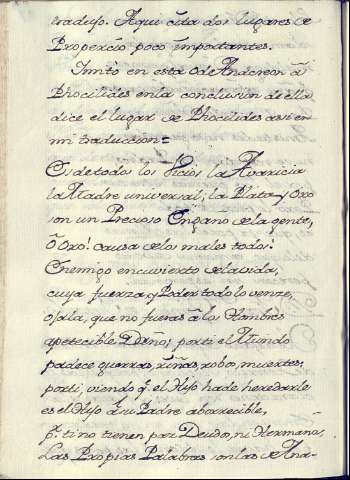 tradujo. Aqui cita dos lugares de
Propercio poco importantes.
Imitò en esta Oda Anacreon à
Phocilides en la conclusion de ella
dice el lugar de Phocilides assi en
mi traduccion=
Es de todos los Vicios la Avaricia
la Madre universal; la Plata y Oro
son un Precioso Engaño de la gente,
ô Oro! causa de los males todos!
Enemigo encuvierto de la vida,
cuya fuerza, y Poder todo lo venze,
ojala, que no fueras â los Hombres
apetecible Daño, por ti el Mundo
padece guerras, riñas, robos, muertes,
por ti, viendo q. el Hijo ha de heredarle
es el Hijo à su Padre aborrecible,
p. ti no tienen paz Deudos, ni Hermanos,
Las Propias Palabras son las de Ana-